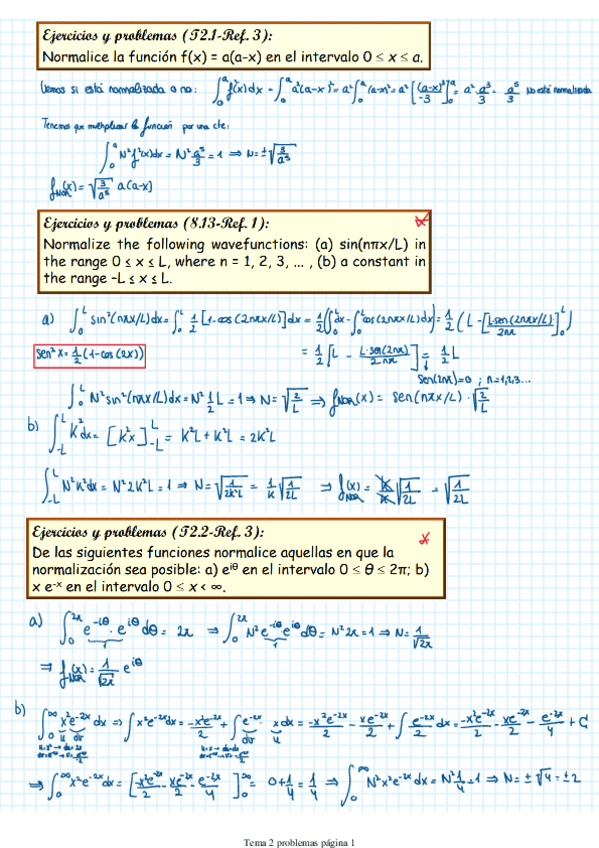 Ejercicios y problemas (T2.1-Ref. 3):
Normalice la función f(x) = a(a-x) en el intervalo 0 ≤ x ≤ a.
Vemos si está normalizada o no: ∫₀ᵃ f²(x)dx = ∫₀ᵃ a²(a-x)² = a² ∫₀ᵃ (a-x)² = a² [(a-x)³/-3]₀ᵃ = a² a³/3 = a⁵/3 No está normalizada
Tenemos que multiplicar la función por una cte:
∫₀ᵃ N²f²(x)dx = N² a⁵/3 = 1 ⇒ N = ±√(3/a⁵)
f_NOR(x) = √(3/a⁵) a(a-x)
Ejercicios y problemas (8.13-Ref. 1):
Normalize the following wavefunctions: (a) sin(nπx/L) in
the range 0 ≤ x ≤ L, where n = 1, 2, 3, ... , (b) a constant in
the range -L ≤ x ≤ L.
a) ∫₀ᴸ sin²(nπx/L)dx = ∫₀ᴸ 1/2 [1-cos(2nπx/L)]dx = 1/2 (∫₀ᴸ dx - ∫₀ᴸ cos(2nπx/L)dx) = 1/2 (L - [L sen(2nπx/L)/2nπ]₀ᴸ)
sen²x = 1/2 (1-cos(2x))
= 1/2 [L - L·sen(2nπ)/2nπ] = 1/2 L
sen(2nπ)=0 ; n=1,2,3...
∫₀ᴸ N² sin²(nπx/L)dx = N² 1/2 L = 1 ⇒ N = √(2/L) ⇒ f_NOR(x) = sen(nπx/L) · √(2/L)
b) ∫₋ʟᴸ K²dx = [K²x]₋ʟᴸ = K²L + K²L = 2K²L
∫₋ʟᴸ N²K²dx = N²2K²L = 1 ⇒ N = √(1/2K²L) = 1/K √(1/2L) ⇒ f_NOR(x) = K/K √(1/2L) = √(1/2L)
Ejercicios y problemas (T2.2-Ref. 3):
De las siguientes funciones normalice aquellas en que la
normalización sea posible: a) e^iθ en el intervalo 0 ≤ θ ≤ 2π; b)
x e^-x en el intervalo 0 ≤ x < ∞.
a) ∫₀^2π e^-iθ · e^iθ dθ = 2π ⇒ ∫₀^2π N² e^-iθ e^iθ dθ = N² 2π = 1 ⇒ N = 1/√2π
⇒ f_NOR(x) = 1/√2π e^iθ
b) ∫₀^∞ x²e^-2x dx ⇒ ∫ x²e^-2x dx = -x²e^-2x/2 + ∫ e^-2x x dx = -x²e^-2x/2 - xe^-2x/2 + ∫ e^-2x/2 dx = -x²e^-2x/2 - xe^-2x/2 - e^-2x/4 + C
⇒ ∫₀^∞ x²e^-2x dx = [-x²e^-2x/2 - xe^-2x/2 - e^-2x/4]₀^∞ = 0 + 1/4 = 1/4 ⇒ ∫₀^∞ N²x²e^-2x dx = N² 1/4 = 1 ⇒ N = ±√4 = ±2
Tema 2 problemas página 1